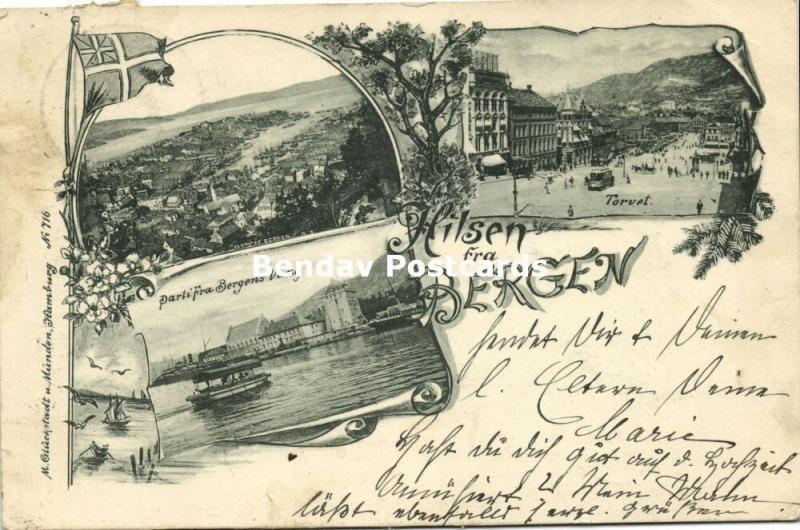 Torvet.
Hilsen
fra
BERGEN
Parti fra Bergens
Bendav Postcards
M. Glückstadt u. Münden, Hamburg № 716
sendet Dir & Deinen
l. Eltern Deine
Marie
Hast du dich gut auf d. Hochzeit
Amüsiert? Mein Mann
läßt ebenfalls grüßen